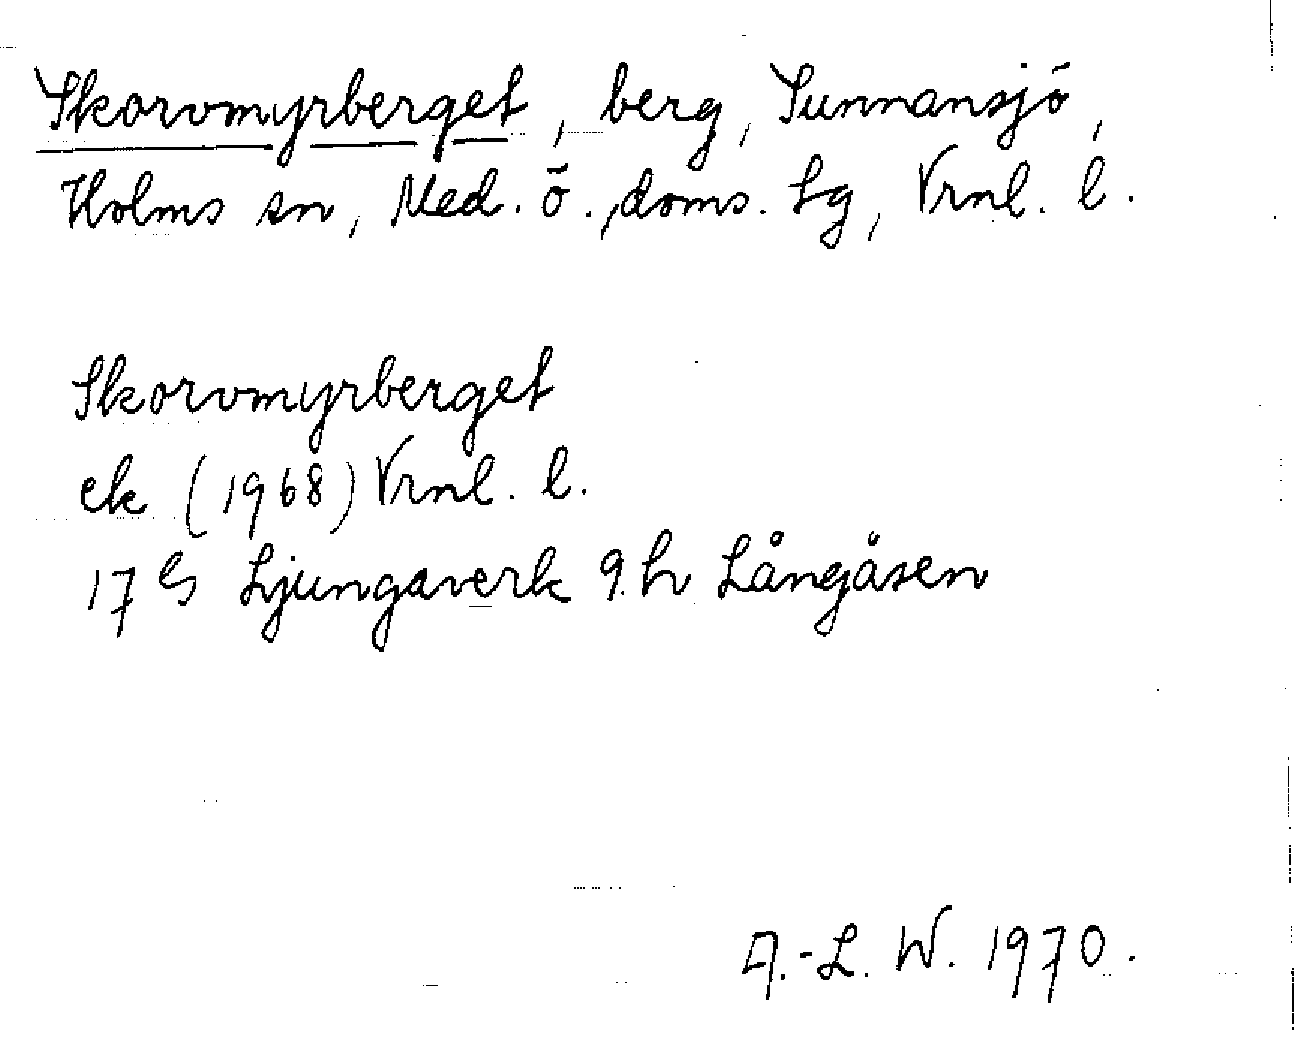 Skorvmyrberget, berg, Sunnansjö,
Holms sn, Med. ö., doms. Lg, Vrnl. l.
Skorvmyrberget
ek (1968) Vrnl. l.
17 G Ljungaverk 9 h Långåsen
A.-L. W. 1970.